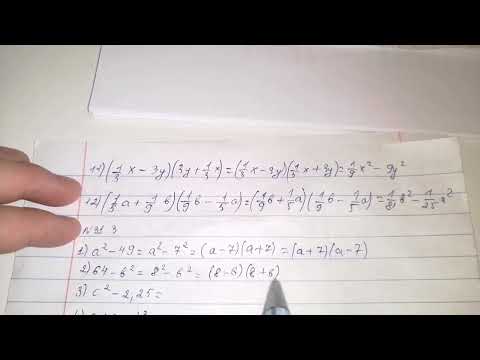 11) (1/3 x - 3y)(3y + 1/3 x) = (1/3 x - 3y)(1/3 x + 3y) = 1/9 x² - 9y²
12) (1/5 a + 1/9 b)(1/9 b - 1/5 a) = (1/9 b + 1/5 a)(1/9 b - 1/5 a) = 1/81 b² - 1/25 a²
1) a² - 49 = a² - 7² = (a - 7)(a + 7) = (a + 7)(a - 7)
2) 64 - b² = 8² - b² = (8 - b)(8 + b)
3) c² - 2,25 =